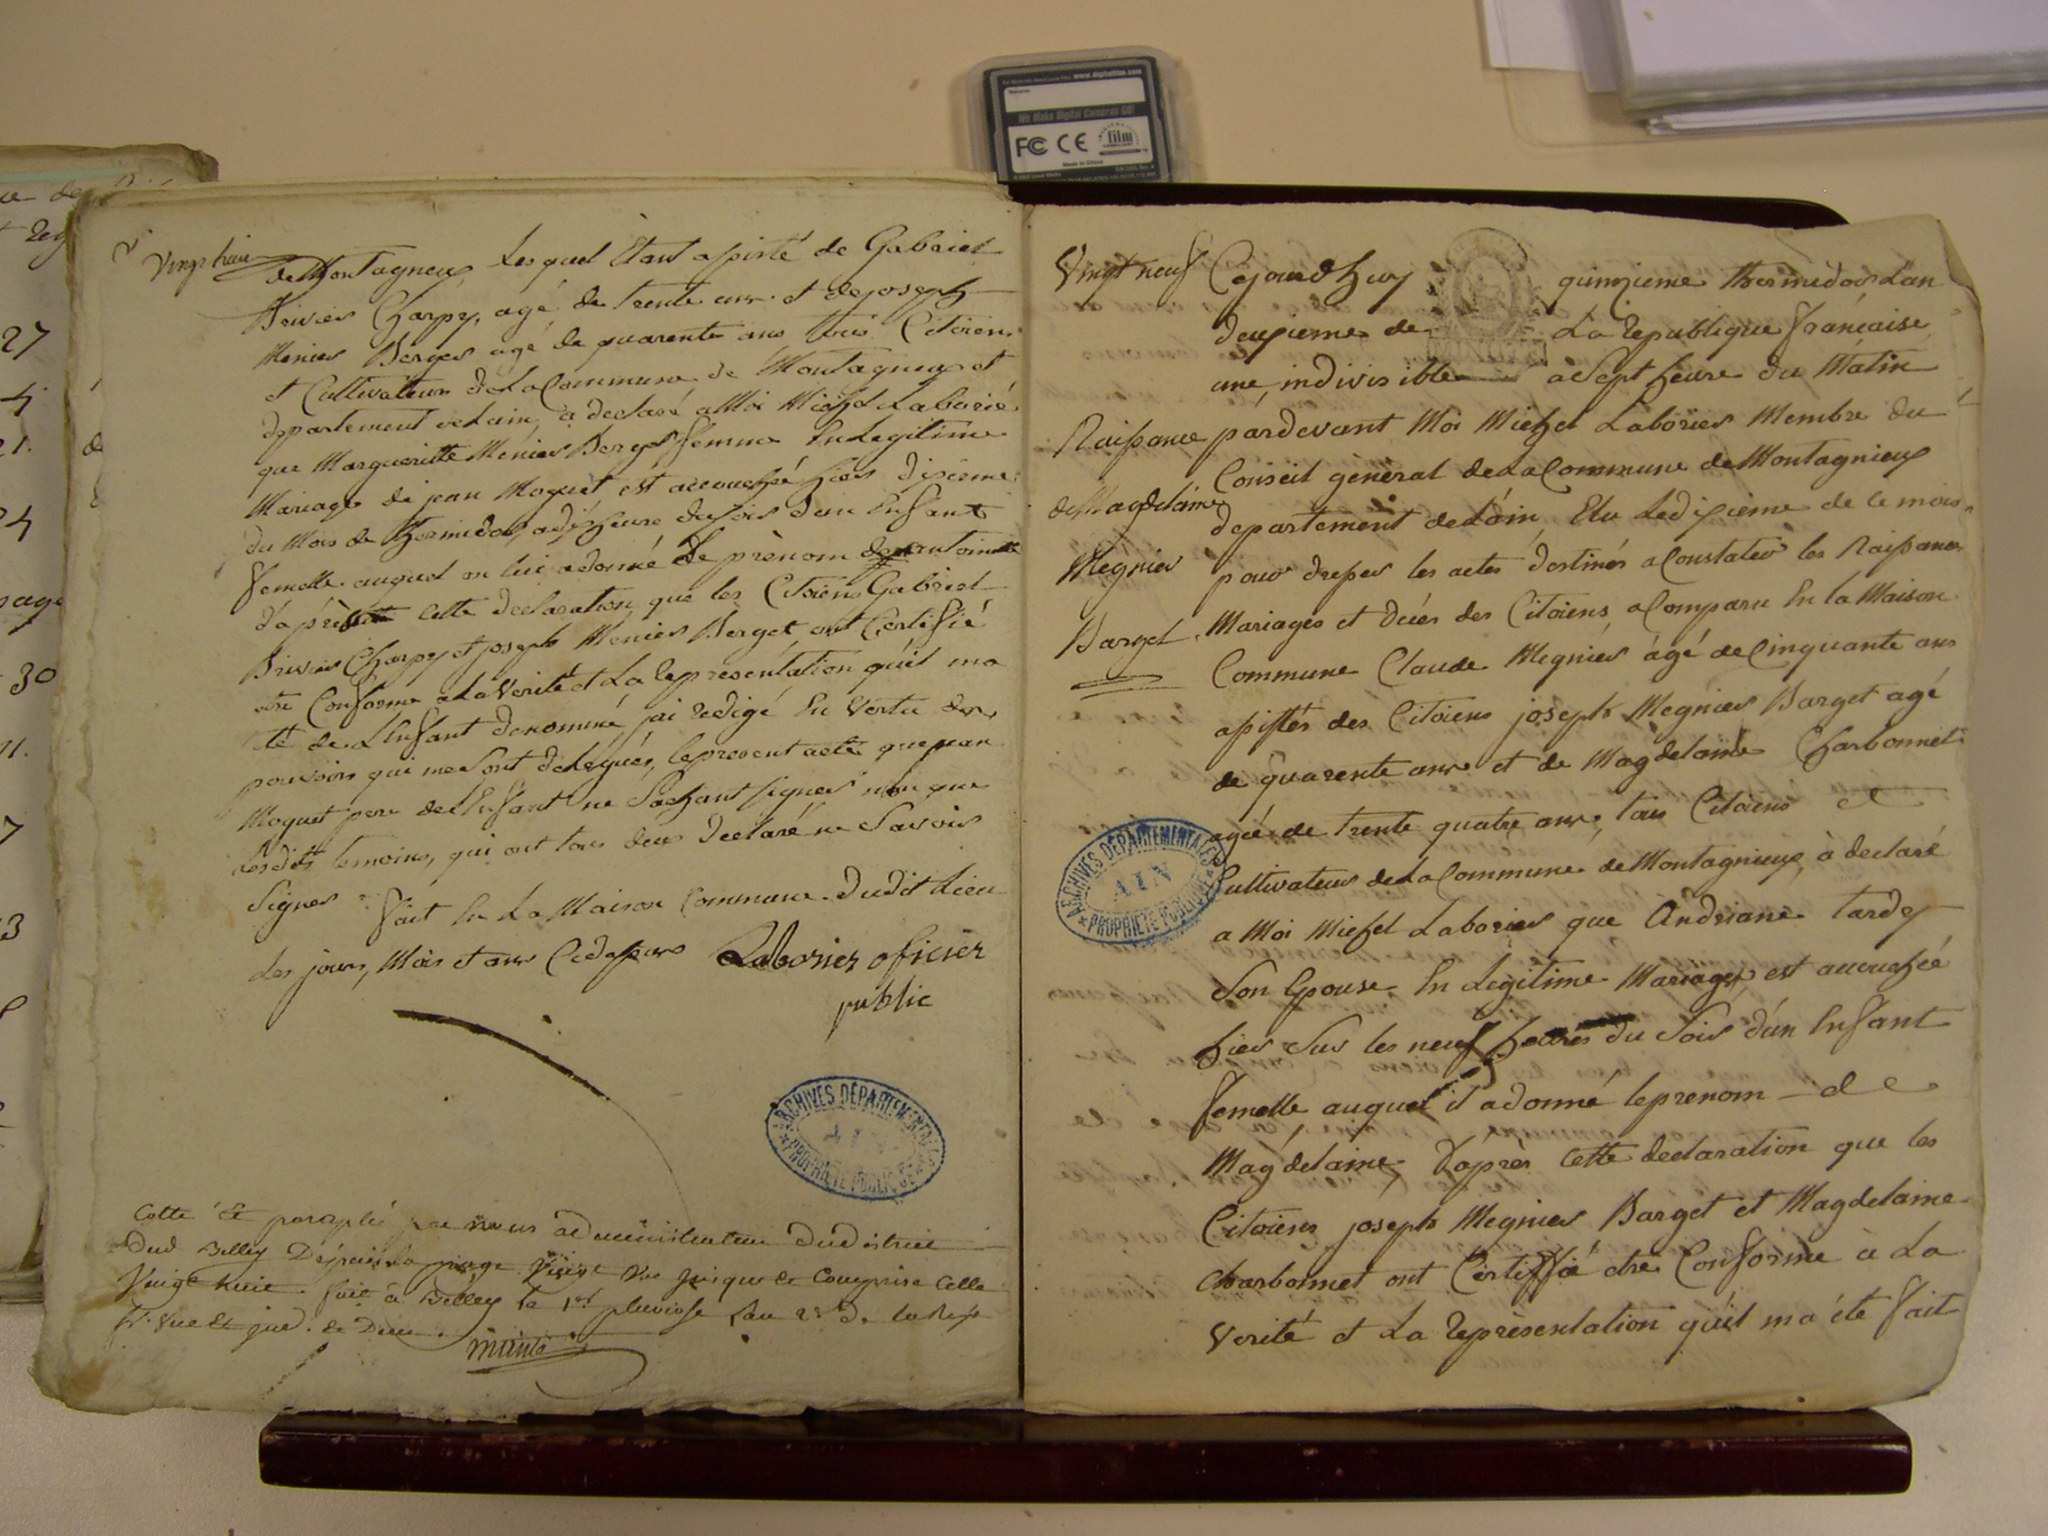 Vingt huit
de Montagneux Lesquel Etant assisté de Gabriel
Brivier Charpy, agé de trente ans et de joseph
Menier Berger agé de quarente ans tous Citoiens
et Cultivateurs de La Commune de Montagneux et
departement de Lain, a declaré a Moi Michel Laborié
que Margueritte Menier Berget femme En Legitime
Mariage de jean Moquet est accouchée hier dixieme
du Mois de thermidor, a dix heure du soir d'un Enfant
femelle auquel on lui a donné Le prènom antoinette
d'après cette declaration que les Citoiens Gabriel
Brivier Charpy et joseph Menier Berget ont Certifié
etre Conforme a La Verité et La représentation qu'il ma
été de L'Enfant denommé, j'ai redigé En Vertu des
pouvoirs qui me sont délégués, le present acte que jean
Moquet pere de L'Enfant ne Sachant signer non que
lesdits temoins, qui ont tous deux declaré ne Savoir
Signer fait En La Maison Commune dudit Lieu
Les jours, Mois et ans Cidessus Laborier oficier
public
ARCHIVES DÉPARTEMENTALES
AIN
PROPRIÉTÉ PUBLIQUE
Cotté Et paraphé par nous administrateur du district
dud Belley Depuis la page jusques et Comprise Celle
Vingt huit. fait à Belley le 1er pluviose L'an 2e D. la Rep
fr. Une Et ind.
27
30
Vingt neuf Cejourdhuy quinzieme thermidor L'an
deuxieme de La republique française
une, indivisible a Sept heure du Matin
Naissance pardevant Moi Michel Laborier Membre du
Conseil général de La Commune de Montagnieux
de Magdelaine departement de L'ain Elu Le dixieme de ce mois
Megnier pour dresser les actes destinés a Constater les Naissances
Mariages et decés des Citoiens a Comparu En la Maison
Barget Commune Claude Megnier âgé de Cinquante ans
assistés des Citoiens joseph Megnier Barget agé
de quarente ans et de Magdelaine Charbonnet
agée de trente quatre ans, tous Citoiens et
Cultivateurs de La Commune de Montagnieux, à declaré
a Moi Michel Laborier que Andriane tardy
Son Epouse En Legitime Mariage, est accouchée
hier Sur les neuf heures du Soir d'un Enfant
femelle auquel il a donné le prenom de
Magdelaine, D'après Cette declaration que les
Citoiens joseph Megnier Barget et Magdelaine
Charbonnet ont Certiffié etre Conforme à La
Verité et La représentation qu'il m'a été fait
ARCHIVES DÉPARTEMENTALES
AIN
PROPRIÉTÉ PUBLIQUE
We Make Digital Cameras GO!
FC CE film
Made in China